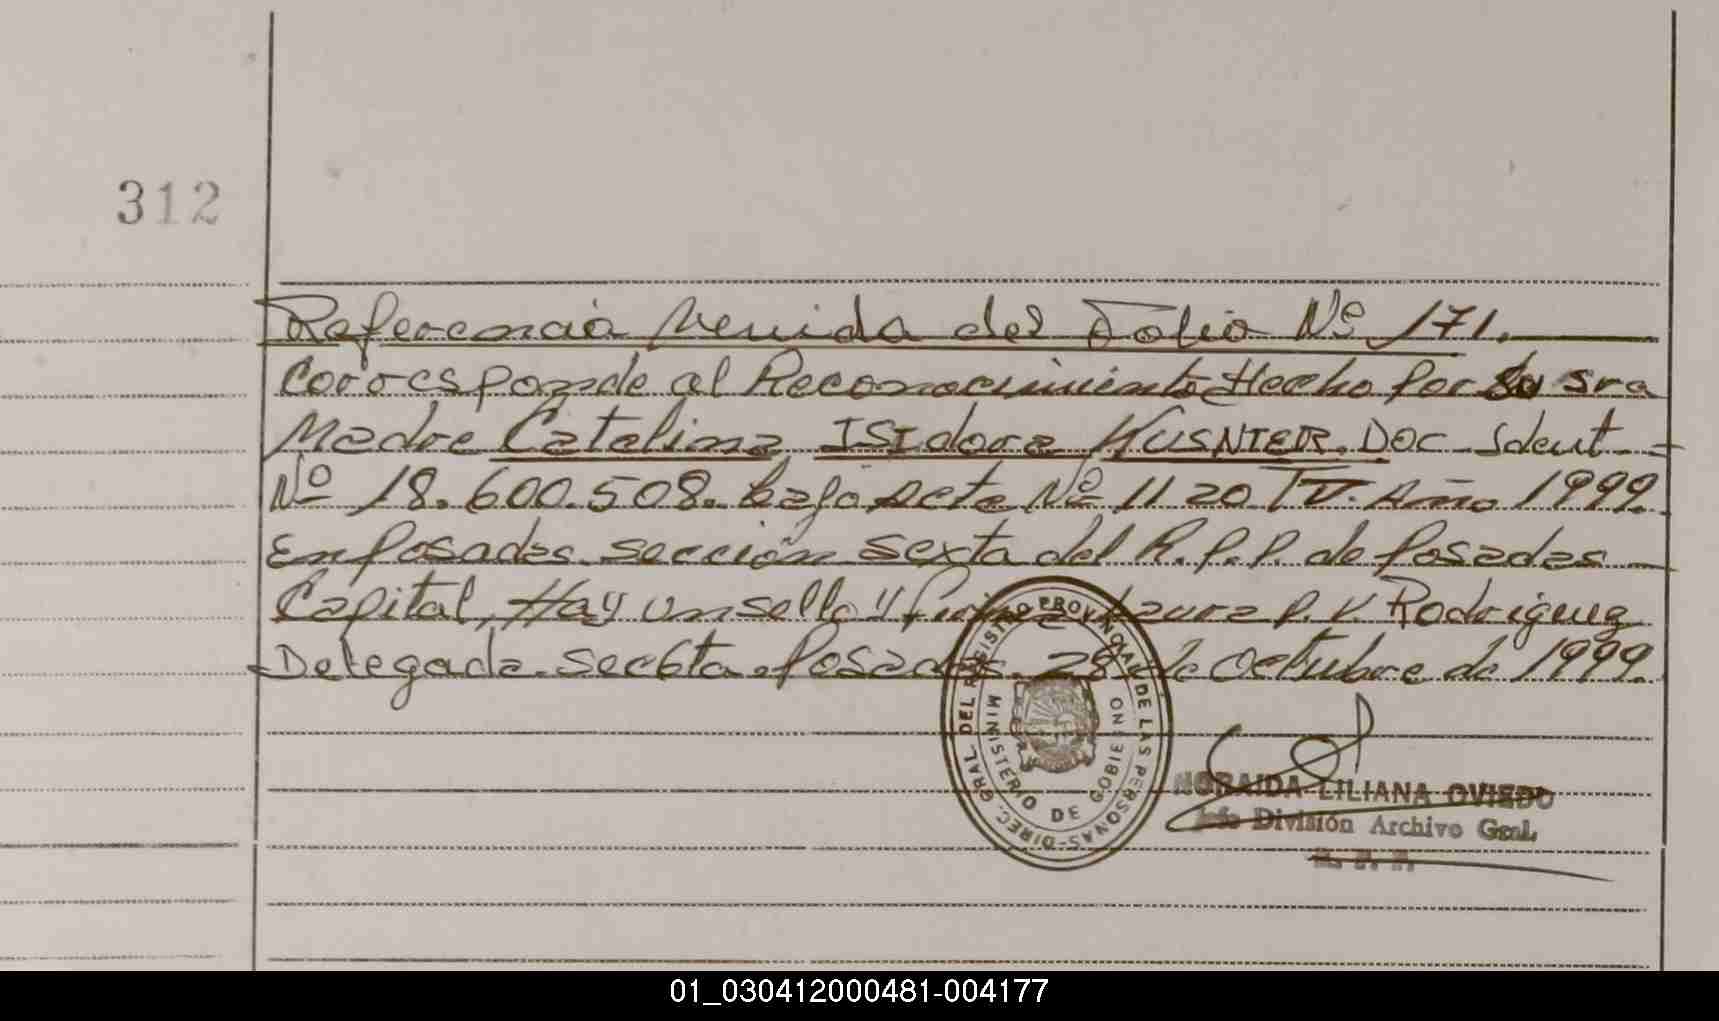 312
Referencia Venida del Folio Nº 171.
Corresponde al Reconocimiento Hecho Por Su sra
Madre Catalina ISIdora KUSNIER. Doc Ident
Nº 18.600.508. bajo Acta Nº 1120 TV. Año 1999.
En Posadas sección sexta del R.P.P. de Posadas
Capital, Hay un sello y firma Laura P. V. Rodriguez
Delegada Sec6ta. Posadas. 28 de Octubre de 1999.
DIREC. GRAL. DEL REGISTRO PROVINCIAL DE LAS PERSONAS
MINISTERIO DE GOBIERNO
NORAIDA LILIANA OVIEDO
Jefe División Archivo Gral.
R. P. P.
01_030412000481-004177